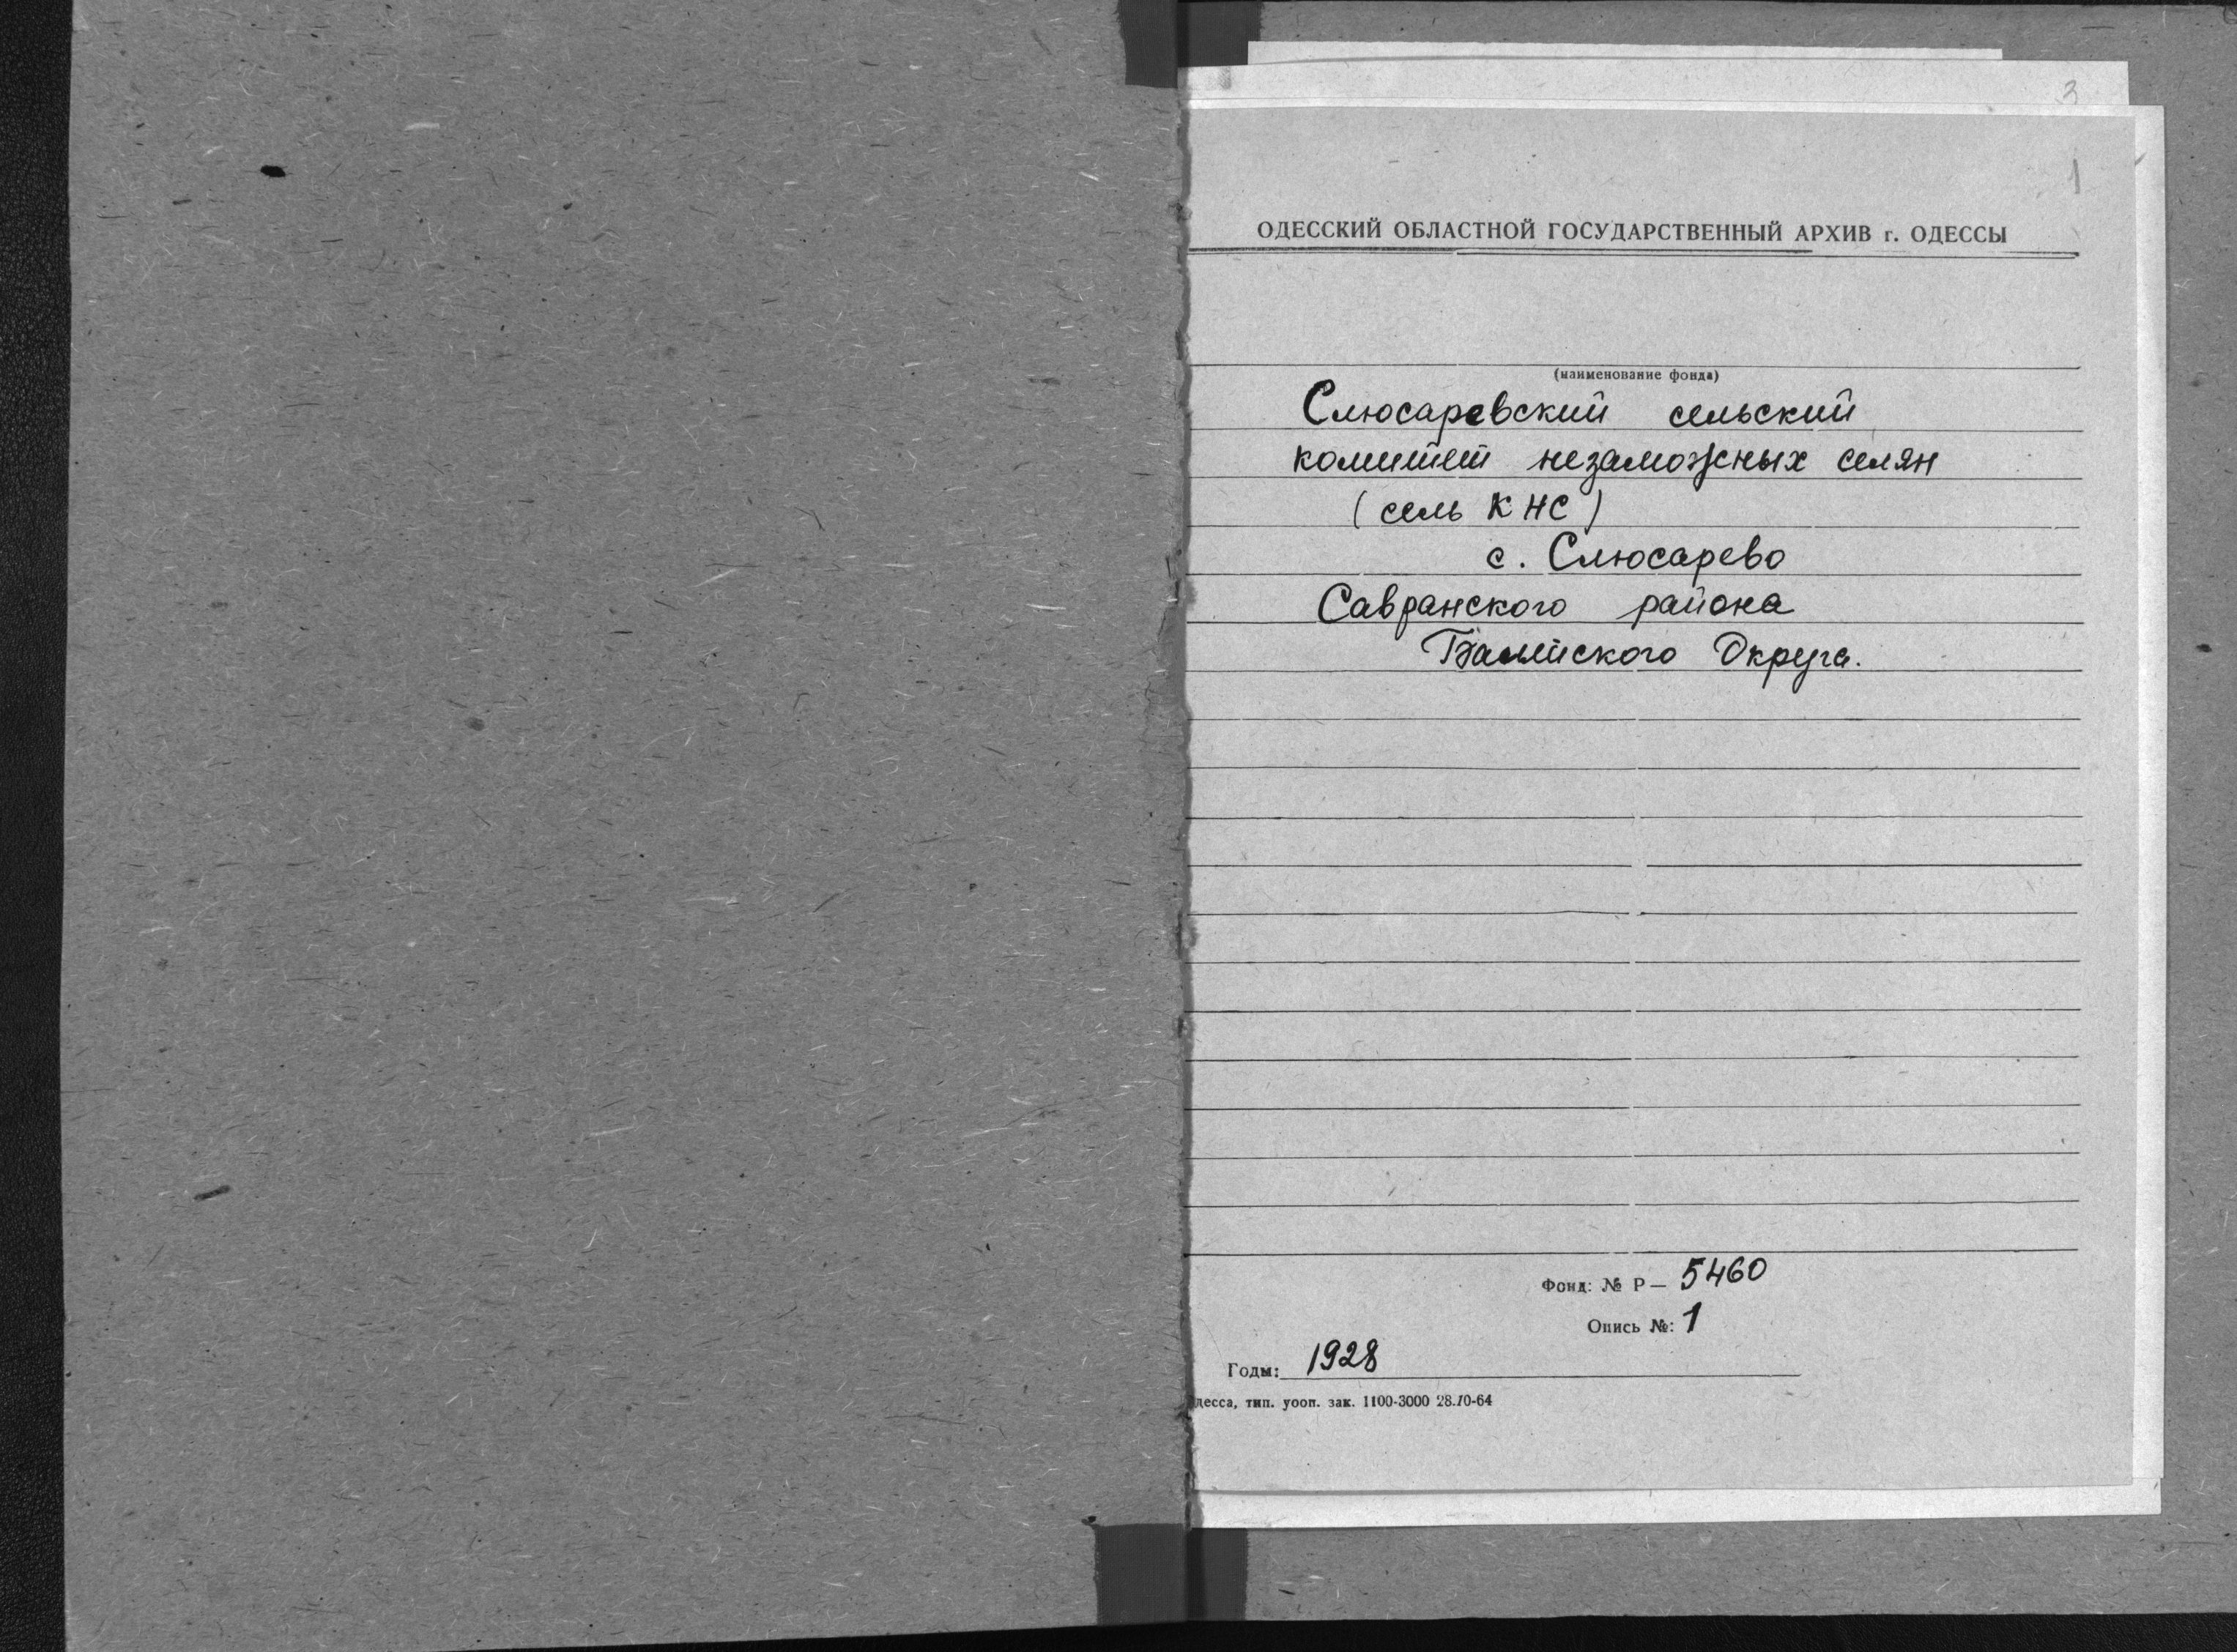 3
1
ОДЕССКИЙ ОБЛАСТНОЙ ГОСУДАРСТВЕННЫЙ АРХИВ г. ОДЕССЫ
(наименование фонда)
Слюсаревский сельский
комитет незаможных селян
(сель КНС)
с. Слюсарево
Савранского района
Балтского Округа.
Фонд: № Р— 5460
Опись №: 1
Годы: 1928
десса, тип. уооп. зак. 1100-3000 28.10-64